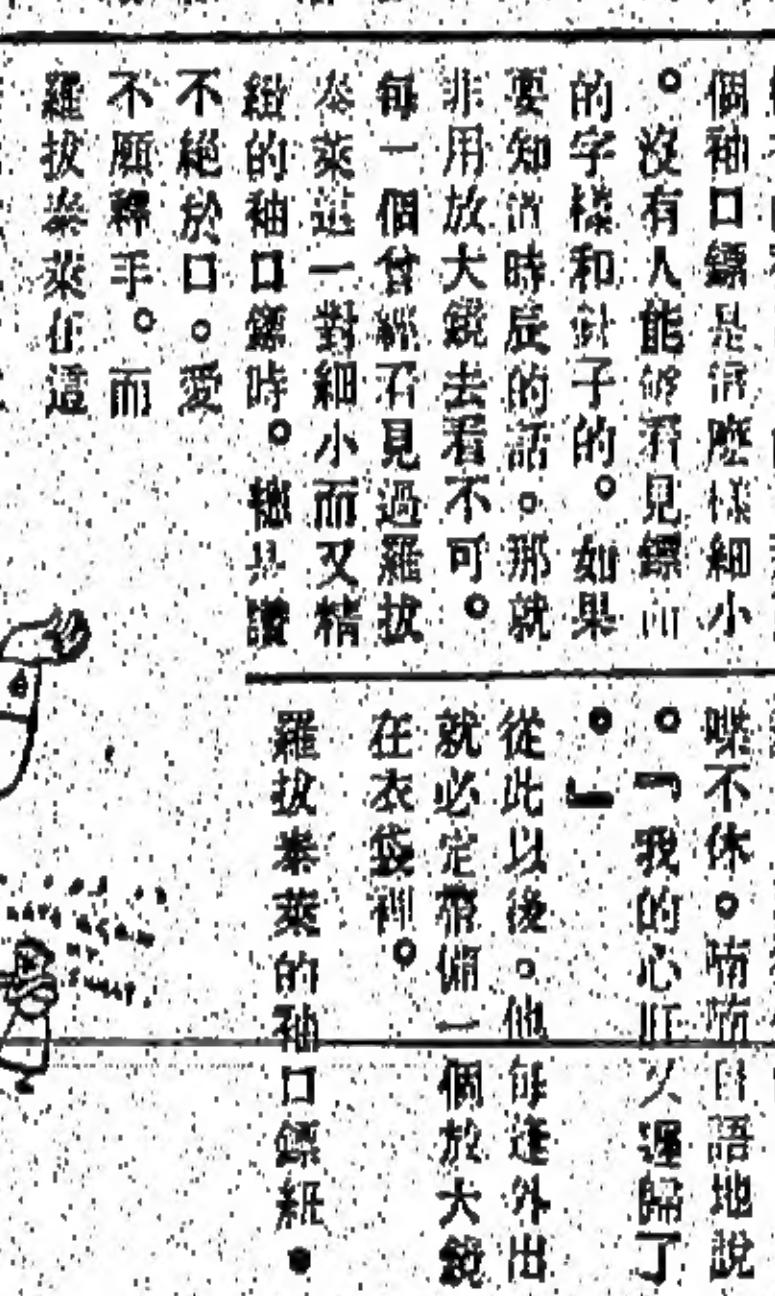 個袖口鏢是這麼樣細小
。沒有人能够看見鏢面
的字樣和針子的。如果
要知道時辰的話。那就
非用放大鏡去看不可。
每一個曾經看見過羅拔
泰萊這一對細小而又精
緻的袖口鏢時。總是讚
不絕於口。愛
不願釋手。而
羅拔泰萊在這
喋不休。喃喃自語地說
。『我的心肝又還歸了
。』
從此以後。他每逢外出
就必定帶備一個放大鏡
在衣袋裡。
羅拔泰萊的袖口鏢紙